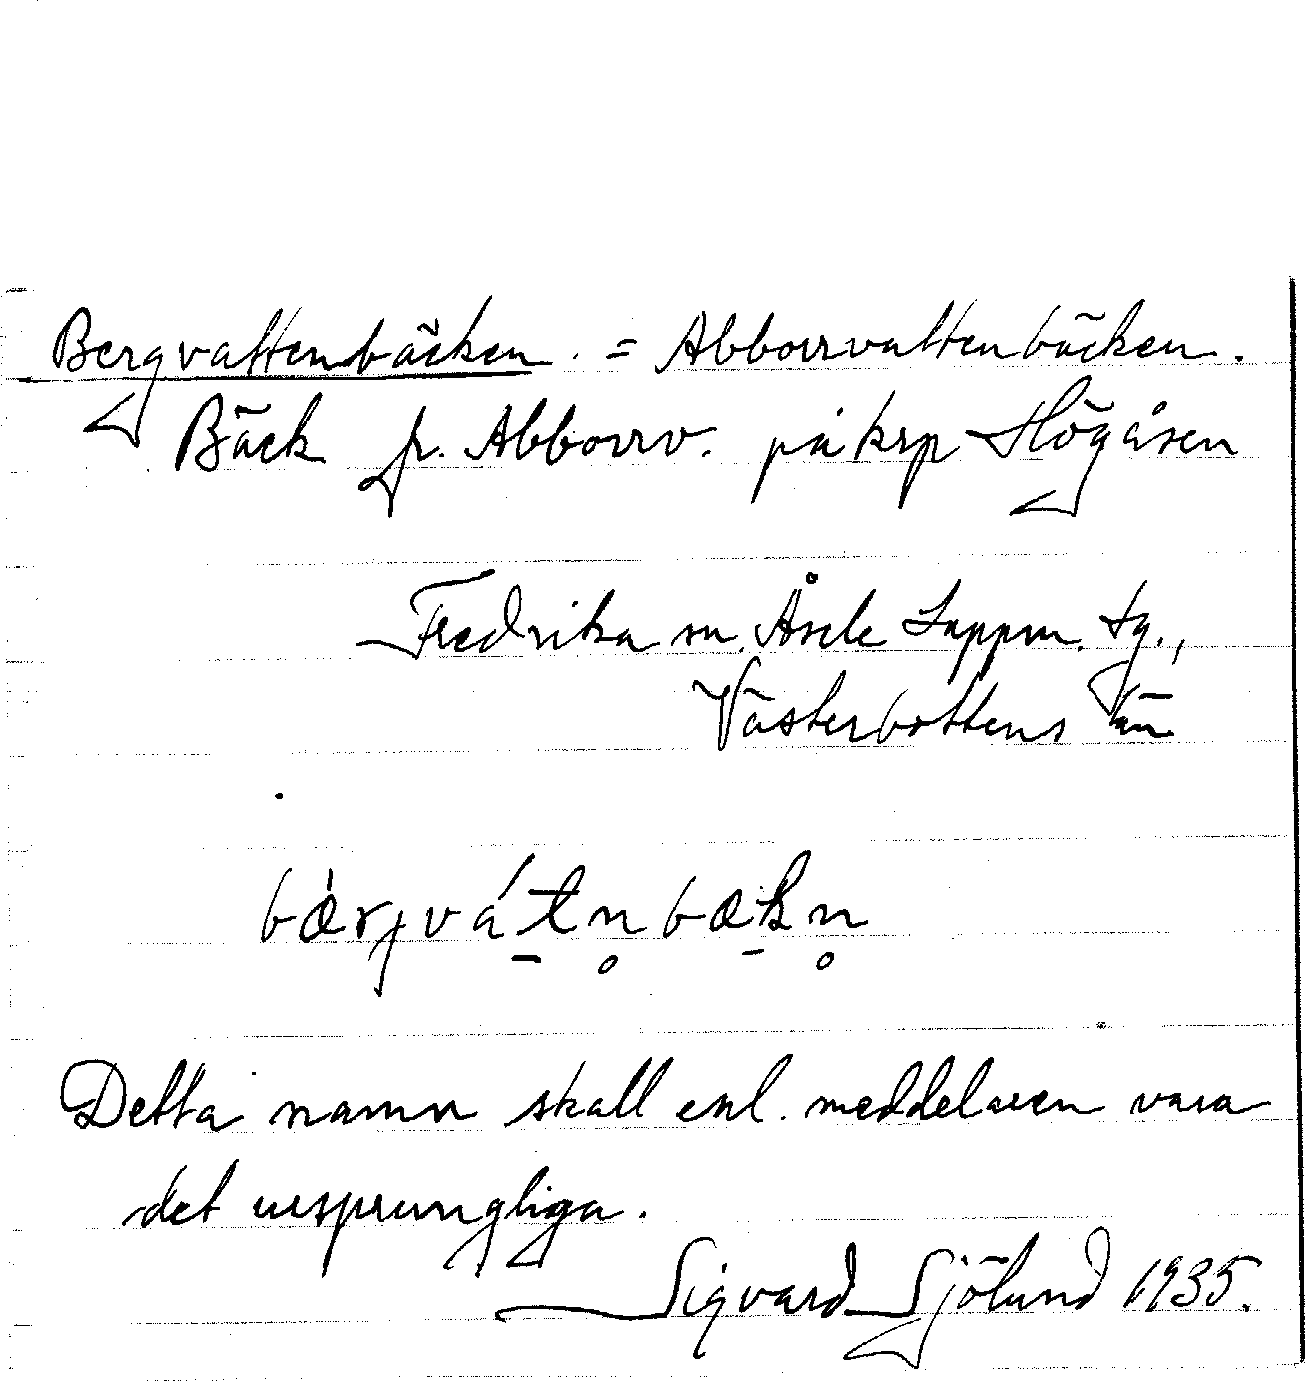 Bergvattenbäcken. = Abborrvattenbäcken.
Bäck fr. Abborrv. på krp Högåsen
Fredrika sn. Åsele Lappm. tg.,
Västerbottens län
bæ̀rjvát̠n̥bæk̠n̥
Detta namn skall enl. meddelaren vara
det ursprungliga.
Sigvard Sjölund 1935.